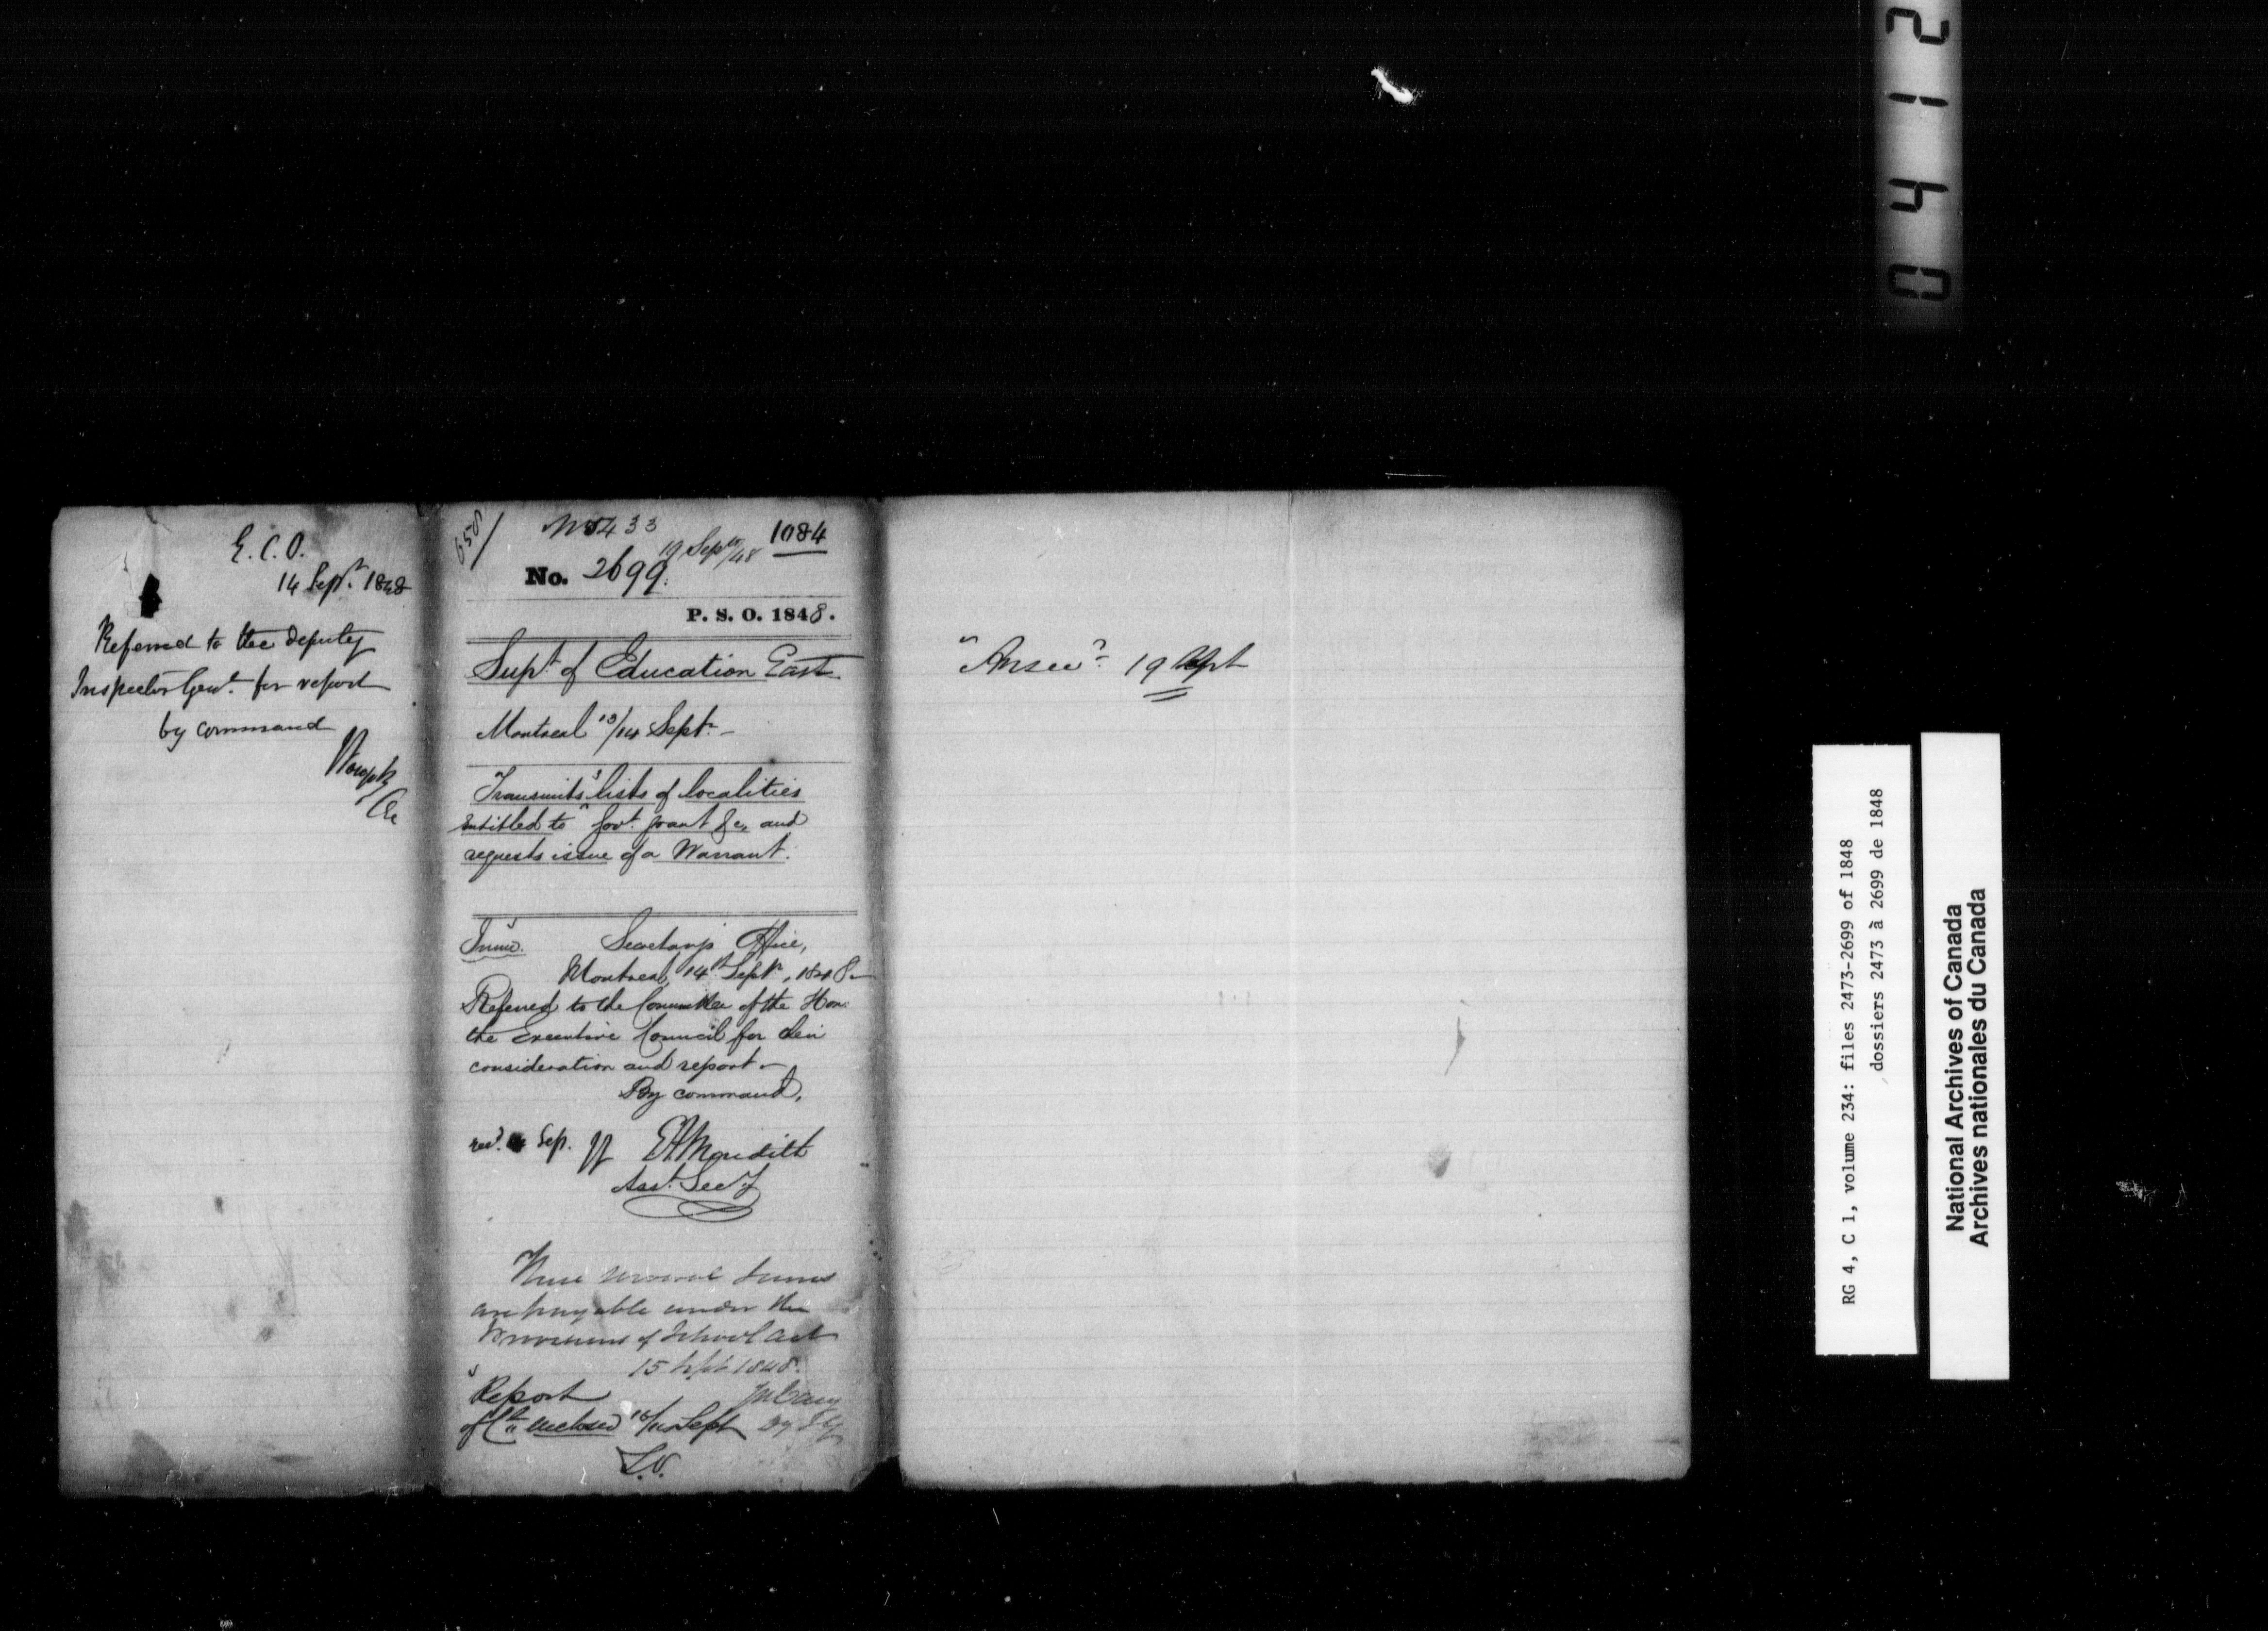 E. C. O.
14 Sept. 1848
Referred to the Deputy
Inspector Genl. for report
by command
658/
No 433
1084
19 Septr/48
No. 2699.
P. S. O. 1848.
Supt. of Education East
Montreal 13/14 Sept. –
Transmits 3 lists of localities
entitled to Govt. grant &c, and
requests issue of a Warrant.
Secretary's Office,
Montreal, 14th Septr, 1848 –
Referred to the Committee of the Hon:
the Executive Council for their
consideration and report –
By command,
recd. Sep.
E A Meredith
Asst. Secy
These several sums
are payable under the
Provisions of School Act
15 Sept 1848.
Report
of Ce. enclosed 15/16 Sept
Dy I G
"Ansd" 19 Sept
0 4 1 2
RG 4, C 1, volume 234: files 2473-2699 of 1848
dossiers 2473 à 2699 de 1848
National Archives of Canada
Archives nationales du Canada